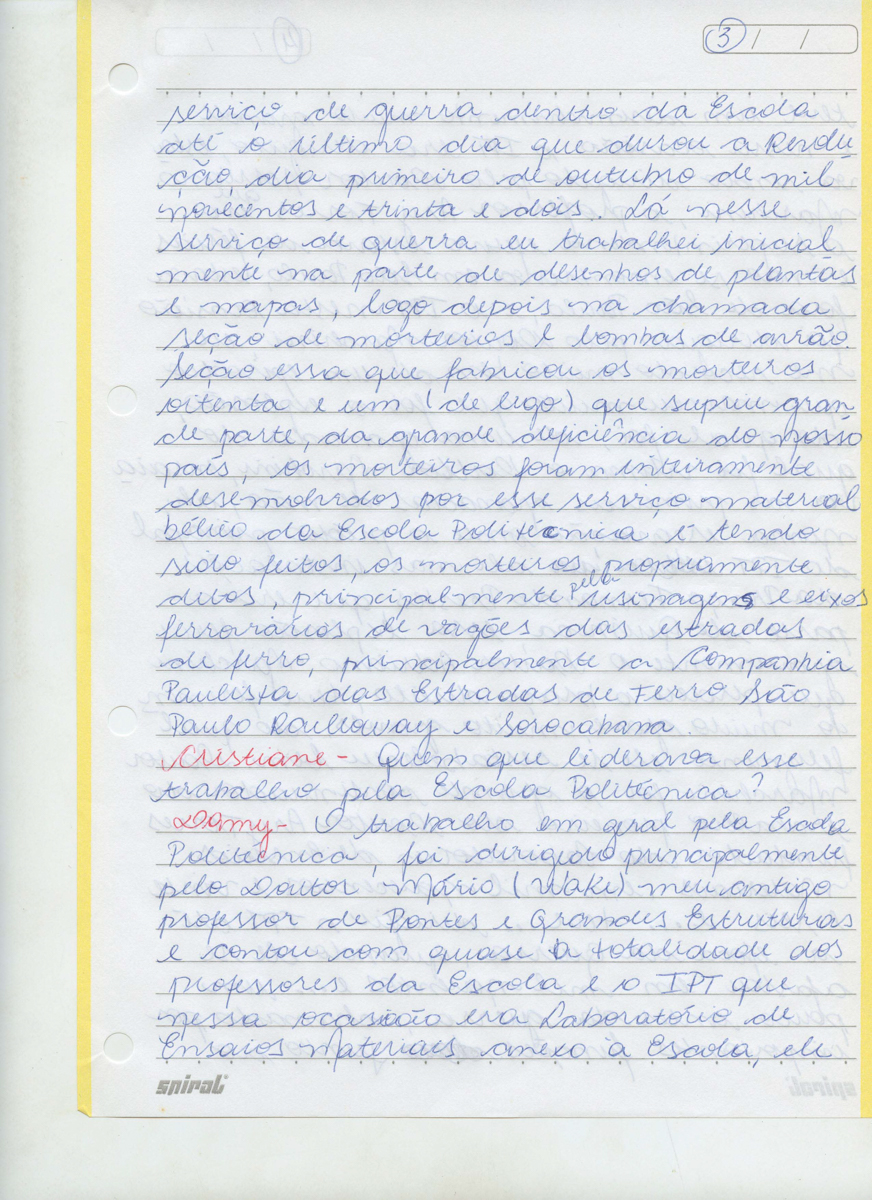 3 / /
serviço de guerra dentro da Escola
até o último dia que durou a Revolu
ção, dia primeiro de outubro de mil
novecentos e trinta e dois. Lá nesse
serviço de guerra eu trabalhei inicial
mente na parte de desenhos de plantas
e mapas, logo depois na chamada
seção de morteiros e bombas de avião.
Seção essa que fabricou os morteiros
oitenta e um (de lego) que supriu gran-
de parte, da grande deficiência do nosso
país, os morteiros foram inteiramente
desenvolvidos por esse serviço material
bélico da Escola Politécnica e tendo
sido feitos, os morteiros propriamente
ditos, principalmente pela usinagens e eixos
ferroviários de vagões das estradas
de ferro, principalmente a Companhia
Paulista das Estradas de Ferro São
Paulo Roulloway e Sorocabana.
Cristiane - Quem que liderava esse
trabalho pela Escola Politécnica?
Damy - O trabalho em geral pela Escola
Politécnica, foi dirigido principalmente
pelo Doutor Mário (Wake) meu antigo
professor de Pontes e Grandes Estruturas
e contou com quase a totalidade dos
professores da Escola e o IPT que
nessa ocasião era Laboratório de
Ensaios Materiaes anexo à Escola, ele
spiral